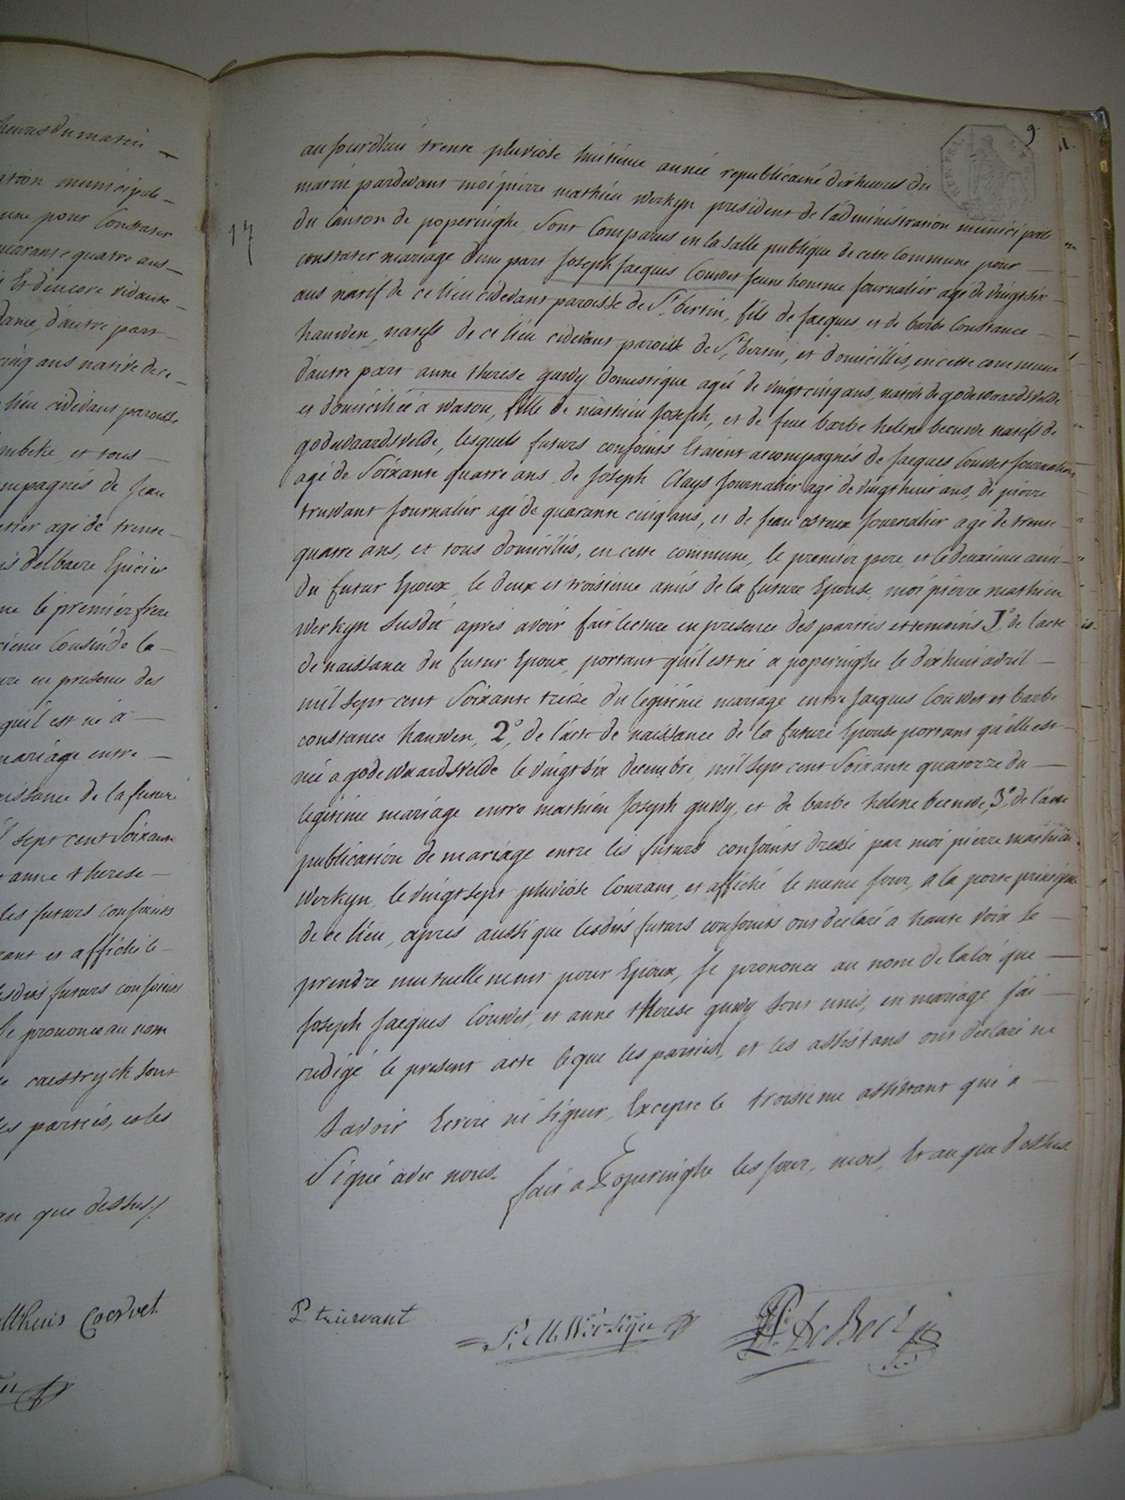 heures du matin
ation municipale
une pour Constater
quarante quatre ans
Et d'encore vivante
dame, d'autre part
cinq ans native de ce
lieu cidevant paroisse
mbeke et tous
ompagnés de Jean
etier agé de trente
is delbaere Epicier
me le premier frere
rieme Cousin de la
re en presence des
qu'il est né à
mariage entre
aissance de la future
l sept cent Soixante
anne therese
les futurs conjoints
rant et affiché le
esdits futurs conjoints
Je prononce au nom
e caestryck sont
es parties, et les
an que dessus /
attheus Coervet
9
1.
17
aujourd'hui trente pluviose huitieme année republicaine dix heures du
matin pardevant moi pierre mathieu werkyn president de l'administration municipale
du Canton de poperinghe Sont Comparus en la Salle publique de cette Commune pour
constater mariage d'une part Joseph Jacques Couwet Jeune homme Journalier agé de vingt six
ans natif de ce lieu cidevant paroisse de St bertin, fils de Jacques et de barbe Constance
hauwen, natifs de ce lieu cidevant paroisse de St bertin, et domiciliés, en cette commune
d'autre part anne therese guwy domestique ageé de vingt cinq ans, native de godewaardsvelde
et domiciliéé a watou, fille de mathieu Joseph, et de feue barbe helene becuwe natifs de
godewaardsvelde, lesquels futurs conjoints Etaient accompagnés de Jacques Couwet Journalier
agé de Soixante quatre ans, de Joseph Clays Journalier agé de vingt huit ans, de pierre
truwant Journalier agé de quarante cinq ans, et de Jean Journalier agé de trente
quatre ans, et tous domiciliés, en cette commune, le premier pere, et le deuxieme ami
du futur Epoux, le deux et troisieme amis de la future Epouse, moi pierre mathieu
werkyn susdit après avoir fait lecture en presence des parties et temoins 1° de l'acte
de naissance du futur Epoux, portant qu'il est né a poperinghe le dix huit avril
mil sept cent Soixante treize du legitime mariage entre Jacques Couwet et barbe
constance hauwen, 2° de l'acte de naissance de la future Epouse portant qu'elle est
née a godewaardsvelde le vingt six decembre, mil sept cent Soixante quatorze du
legitime mariage entre mathieu Joseph guwy, et de barbe helene becuwe, 3° de l'acte
publication de mariage entre les futurs conjoints dressé par moi pierre mathieu
werkyn, le vingt sept pluviose Courant, et affiché le meme jour, a la porte principale
de ce lieu, apres aussi que lesdits futurs conjoints ont declaré a haute voix se
prendre mutuellement pour Epoux, Je prononce au nom de la loi que
Joseph Jacques Couwet, et anne therese guwy Sont unis, en mariage, J'ai
redigé le present acte le que les parties, et les assistans ont declaré ne
Savoir Ecrire ni Signer, Excepté le troisieme assistant qui a
Signé avec nous.
fait a Poperinghe les jour, mois, et an que dessus
P truwant
P: M: Werkyn
P. De Bee